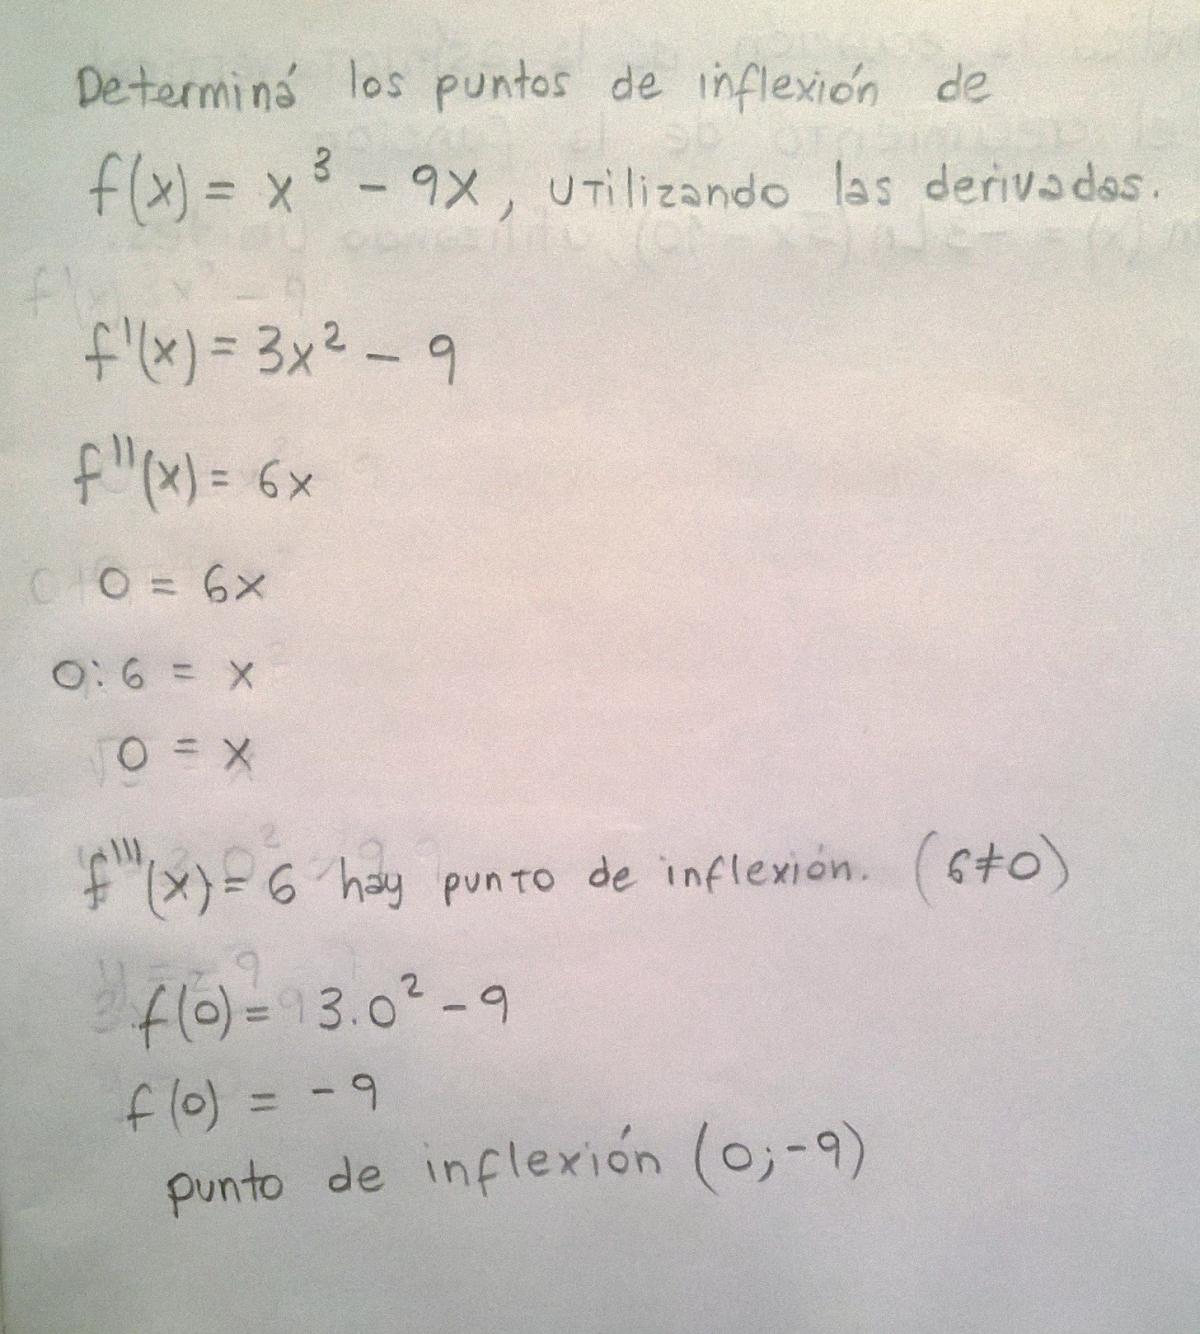 Determiná los puntos de inflexión de
f(x) = x³ - 9x, utilizando las derivadas.
f'(x) = 3x² - 9
f''(x) = 6x
0 = 6x
0:6 = x
0 = x
f'''(x) = 6 hay punto de inflexión. (6≠0)
f(0) = 3.0² - 9
f(0) = -9
punto de inflexión (0;-9)